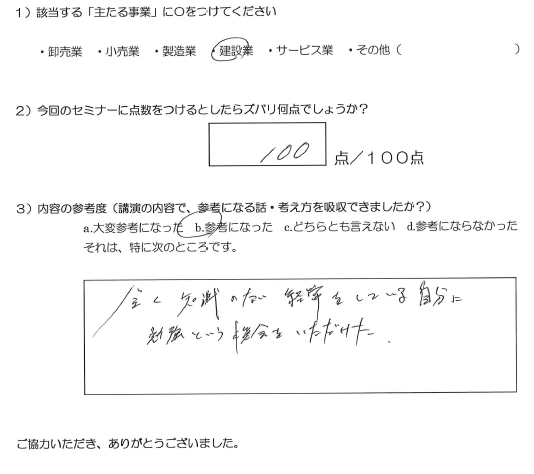 1）該当する「主たる事業」に○をつけてください
・卸売業 ・小売業 ・製造業 ・建設業 ・サービス業 ・その他（ ）
2）今回のセミナーに点数をつけるとしたらズバリ何点でしょうか？
100 点／100点
3）内容の参考度（講演の内容で、参考になる話・考え方を吸収できましたか？）
a.大変参考になった b.参考になった c.どちらとも言えない d.参考にならなかった
それは、特に次のところです。
全く知識のない経営をしている自分に
勉強という機会をいただけた.
ご協力いただき、ありがとうございました。